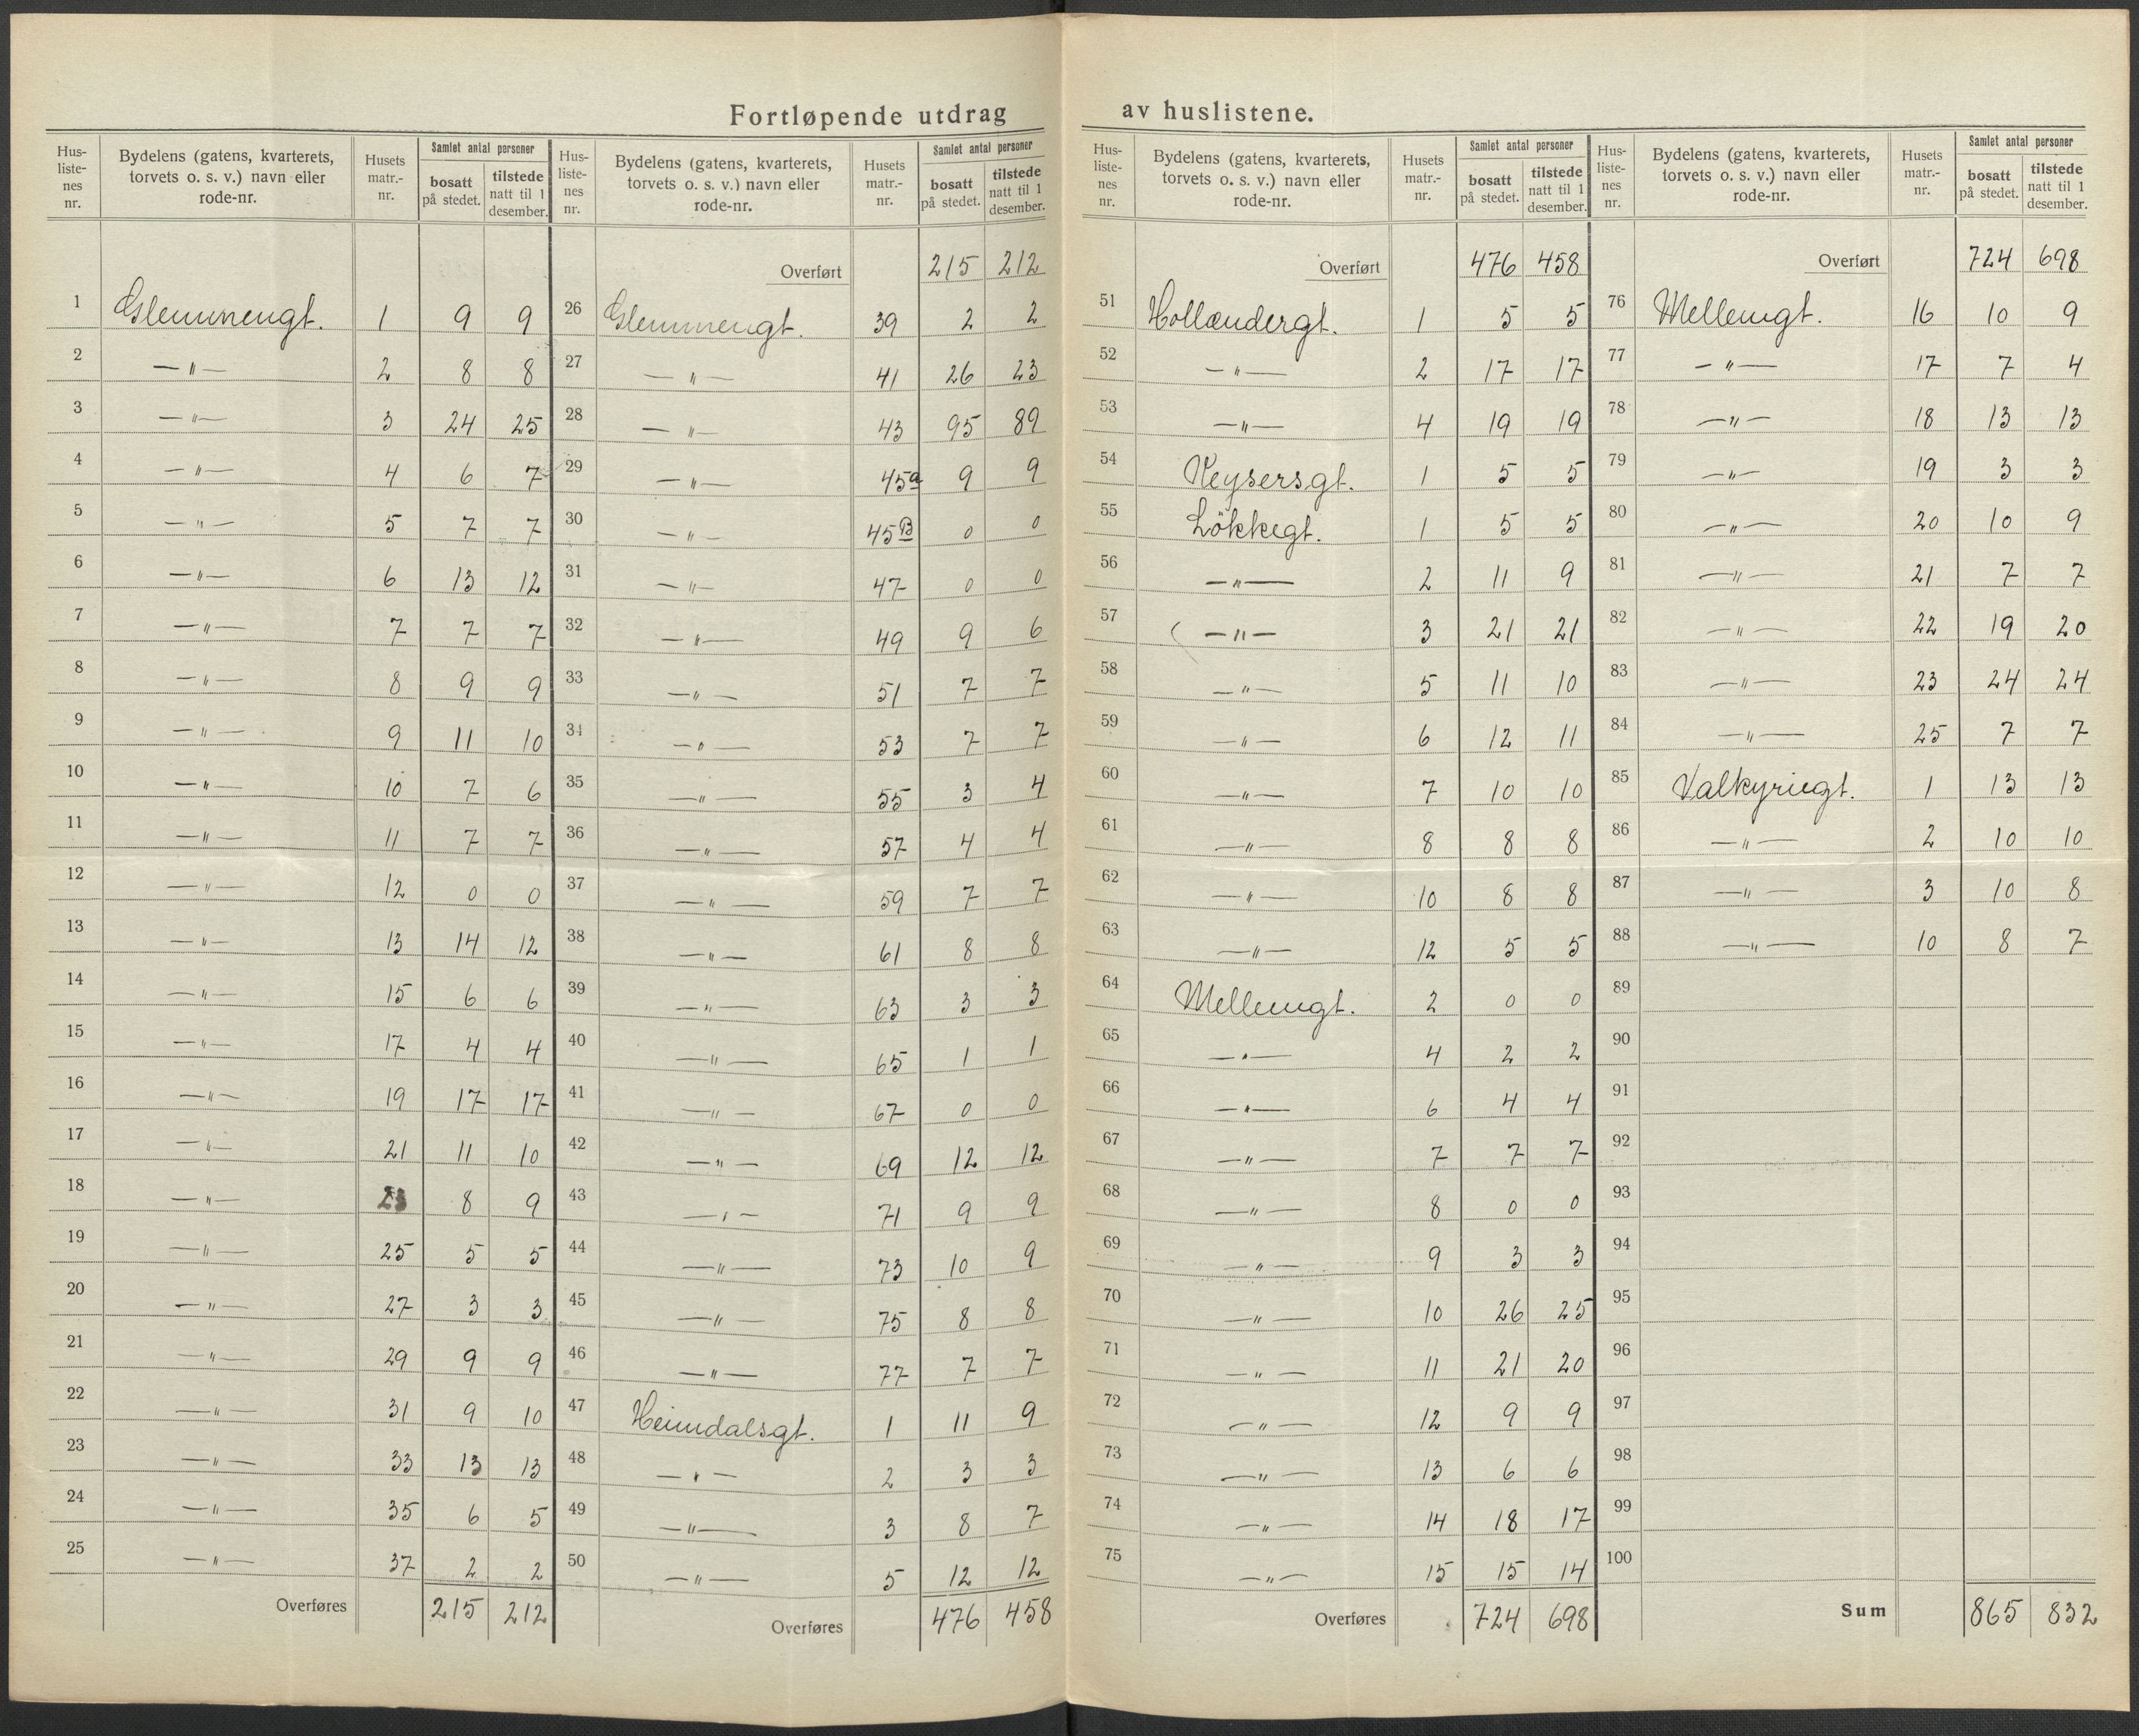 Fortløpende utdrag av huslistene.
Hus-listenes nr. | Bydelens (gatens, kvarterets, torvets o. s. v.) navn eller rode-nr. | Husets matr.-nr. | Samlet antal personer bosatt på stedet. | tilstede natt til 1 desember.
1 Glemmengt. 1 9 9
2 —"— 2 8 8
3 —"— 3 24 25
4 —"— 4 6 7
5 —"— 5 7 7
6 —"— 6 13 12
7 —"— 7 7 7
8 —"— 8 9 9
9 —"— 9 11 10
10 —"— 10 7 6
11 —"— 11 7 7
12 —"— 12 0 0
13 —"— 13 14 12
14 —"— 15 6 6
15 —"— 17 4 4
16 —"— 19 17 17
17 —"— 21 11 10
18 —"— 23 8 9
19 —"— 25 5 5
20 —"— 27 3 3
21 —"— 29 9 9
22 —"— 31 9 10
23 —"— 33 13 13
24 —"— 35 6 5
25 —"— 37 2 2
Overføres 215 212
Hus-listenes nr. | Bydelens (gatens, kvarterets, torvets o. s. v.) navn eller rode-nr. | Husets matr.-nr. | Samlet antal personer bosatt på stedet. | tilstede natt til 1 desember.
Overført 215 212
26 Glemmengt. 39 2 2
27 —"— 41 26 23
28 —"— 43 95 89
29 —"— 45a 9 9
30 —"— 45B 0 0
31 —"— 47 0 0
32 —"— 49 9 6
33 —"— 51 7 7
34 —"— 53 7 7
35 —"— 55 3 4
36 —"— 57 4 4
37 —"— 59 7 7
38 —"— 61 8 8
39 —"— 63 3 3
40 —"— 65 1 1
41 —"— 67 0 0
42 —"— 69 12 12
43 —"— 71 9 9
44 —"— 73 10 9
45 —"— 75 8 8
46 —"— 77 7 7
47 Heimdalsgt. 1 11 9
48 —"— 2 3 3
49 —"— 3 8 7
50 —"— 5 12 12
Overføres 476 458
Hus-listenes nr. | Bydelens (gatens, kvarterets, torvets o. s. v.) navn eller rode-nr. | Husets matr.-nr. | Samlet antal personer bosatt på stedet. | tilstede natt til 1 desember.
Overført 476 458
51 Hollændergt. 1 5 5
52 —"— 2 17 17
53 —"— 4 19 19
54 Keysersgt. 1 5 5
55 Lökkegt. 1 5 5
56 —"— 2 11 9
57 —"— 3 21 21
58 —"— 5 11 10
59 —"— 6 12 11
60 —"— 7 10 10
61 —"— 8 8 8
62 —"— 10 8 8
63 —"— 12 5 5
64 Mellemgt. 2 0 0
65 —"— 4 2 2
66 —"— 6 4 4
67 —"— 7 7 7
68 —"— 8 0 0
69 —"— 9 3 3
70 —"— 10 26 25
71 —"— 11 21 20
72 —"— 12 9 9
73 —"— 13 6 6
74 —"— 14 18 17
75 —"— 15 15 14
Overføres 724 698
Hus-listenes nr. | Bydelens (gatens, kvarterets, torvets o. s. v.) navn eller rode-nr. | Husets matr.-nr. | Samlet antal personer bosatt på stedet. | tilstede natt til 1 desember.
Overført 724 698
76 Mellemgt. 16 10 9
77 —"— 17 7 4
78 —"— 18 13 13
79 —"— 19 3 3
80 —"— 20 10 9
81 —"— 21 7 7
82 —"— 22 19 20
83 —"— 23 24 24
84 —"— 25 7 7
85 Valkyriegt. 1 13 13
86 —"— 2 10 10
87 —"— 3 10 8
88 —"— 10 8 7
89
90
91
92
93
94
95
96
97
98
99
100
Sum 865 832